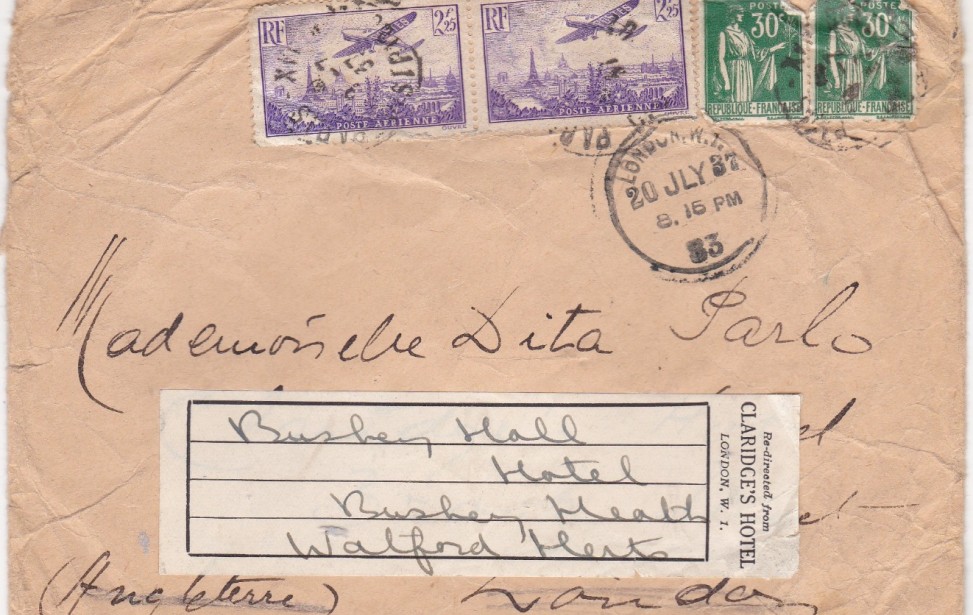 RF 2F25 POSTE AÉRIENNE
RF 2F25 POSTE AÉRIENNE
POSTE 30c REPUBLIQUE-FRANÇAISE
POSTE 30c REPUBLIQUE-FRANÇAISE
PARIS
PAR
LONDON. W.1.
20 JLY 37
8. 15 PM
83
Mademoiselle Dita Parlo
Bushey Hall
Hotel
Bushey Heath
Watford Herts
Re-directed from
CLARIDGE'S HOTEL
LONDON, W. 1.
(Angleterre) London